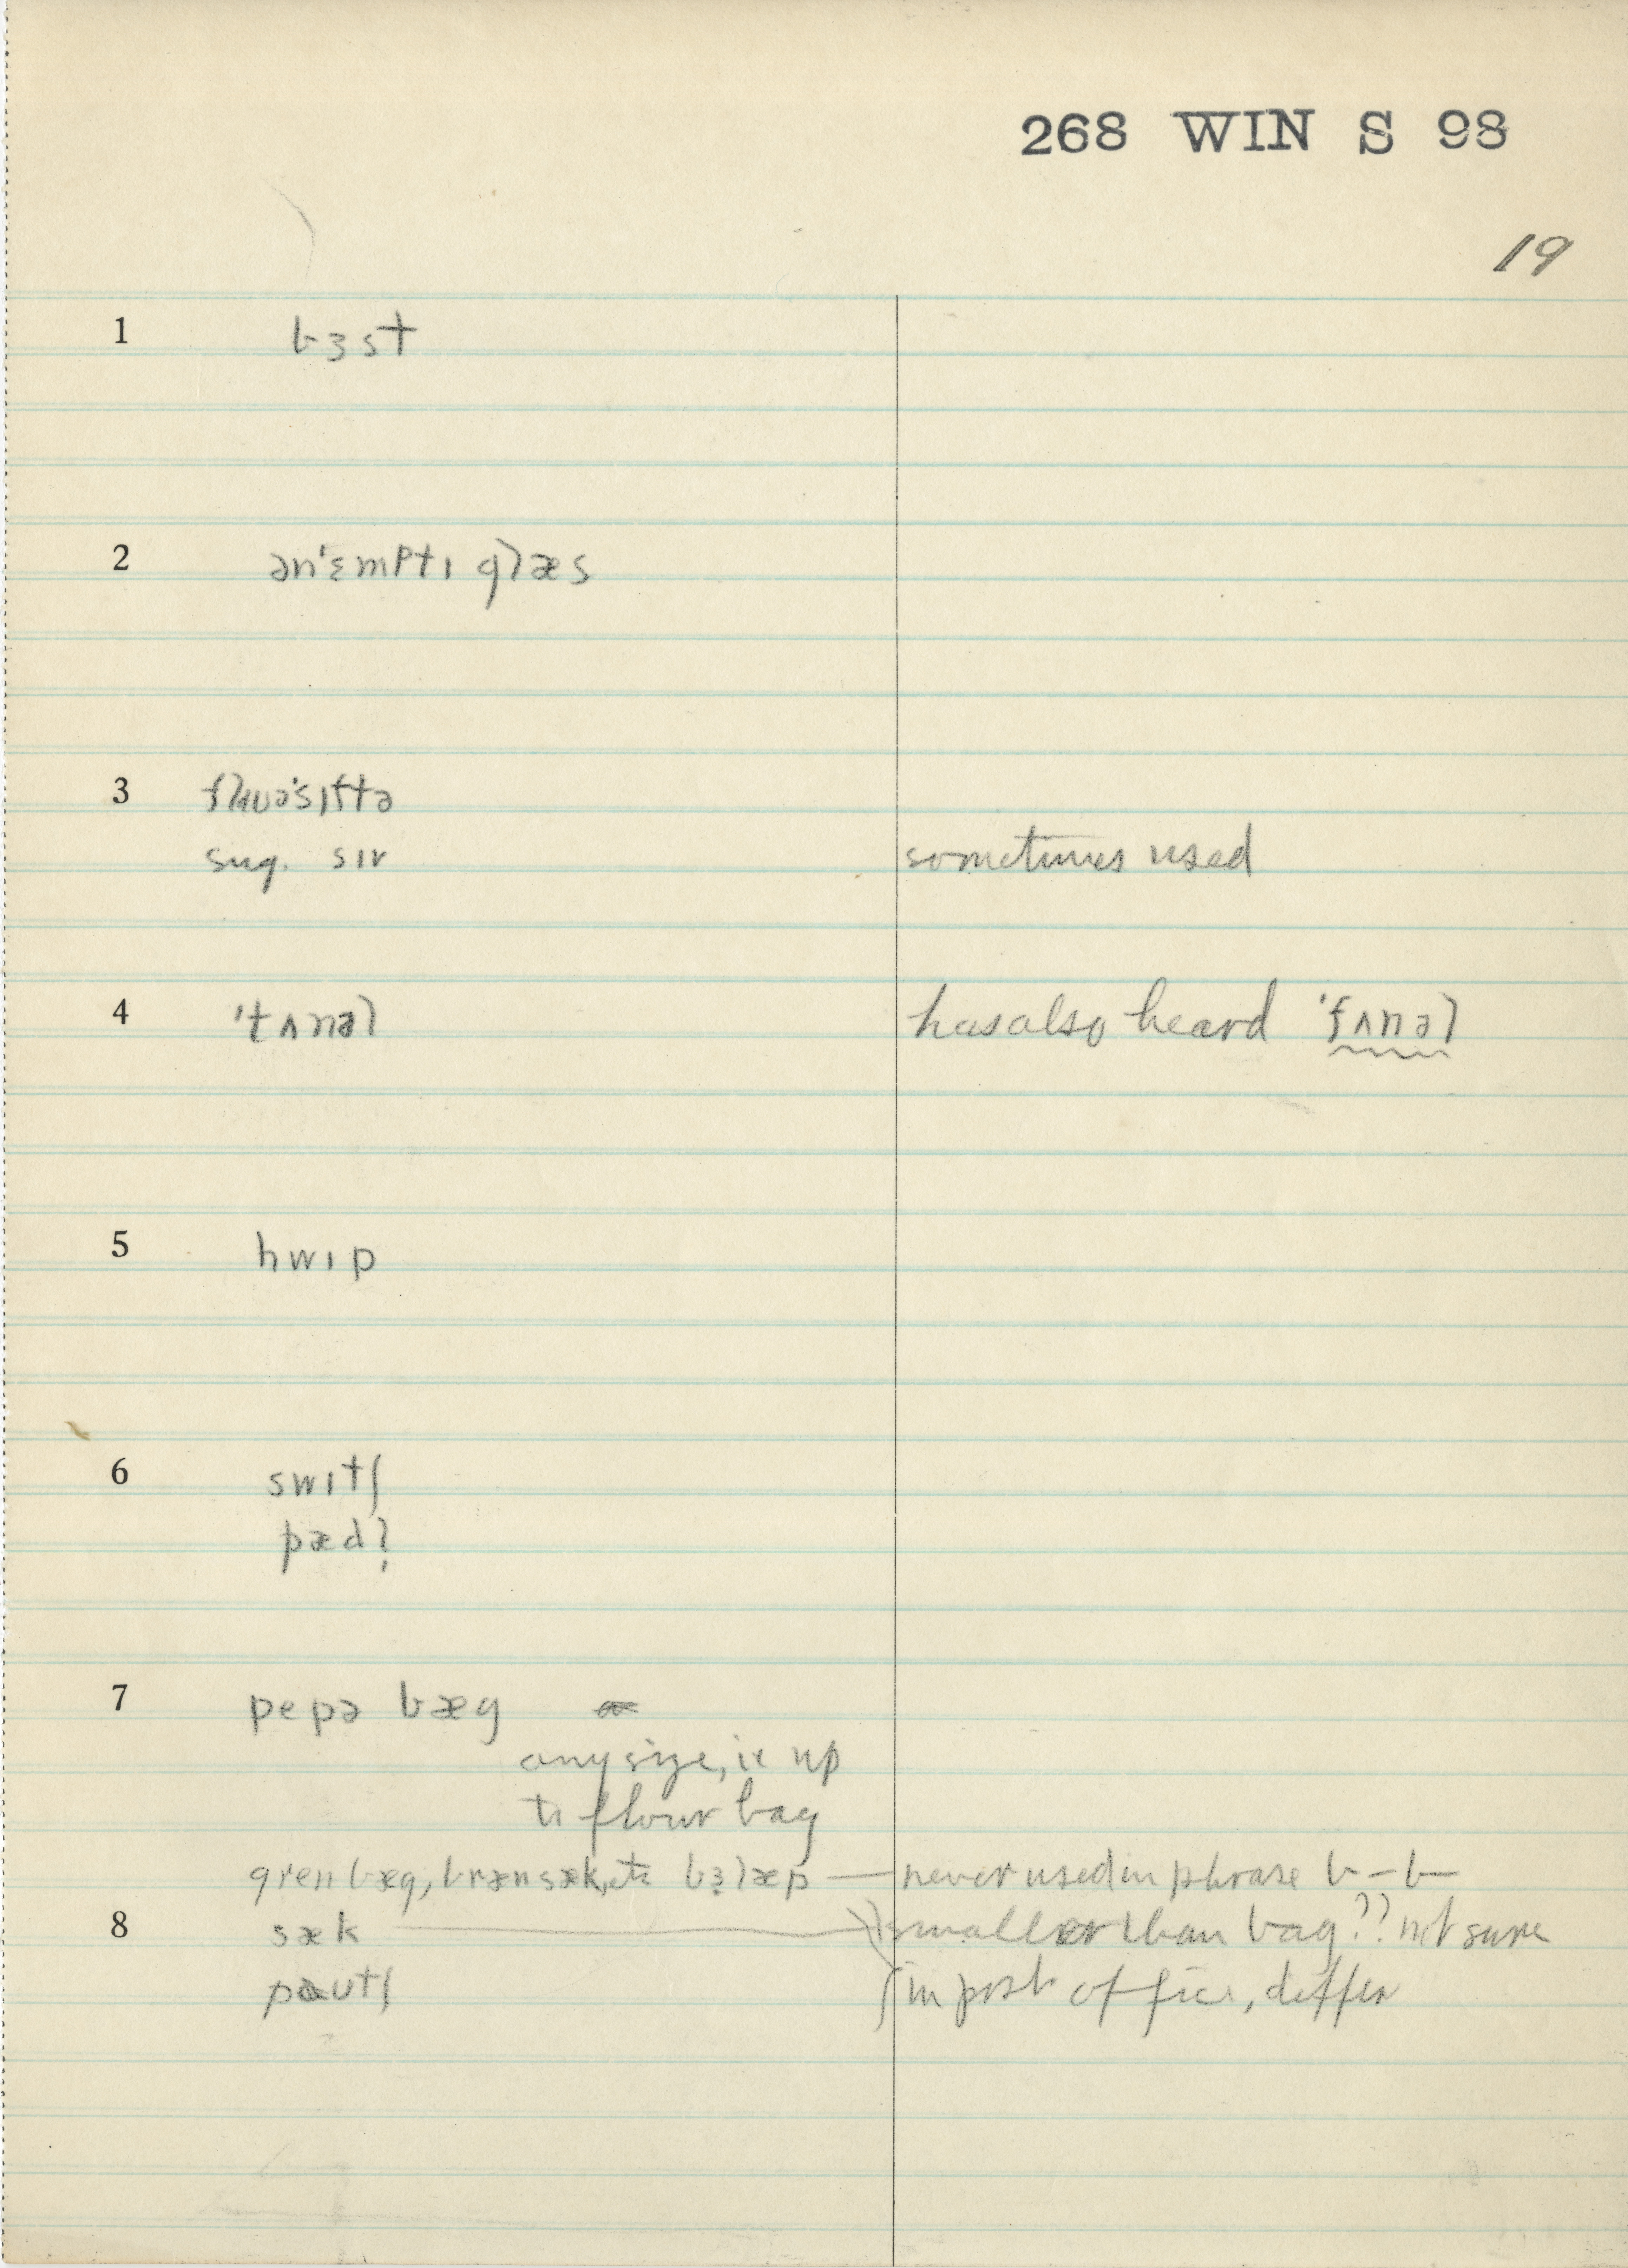 268 WIN S 98
19
1 bɜst
2 ən'ɛmptɪ glæs
3 flɑuə'sɪftə
sug. sɪv sometimes used
4 'tʌnəl has also heard 'fʌnəl
5 hwɪp
6 swɪtʃ
pæd?
7 pepə bæg
any size, ie up
to flour bag
gren bæg, bræn sæk, etc bɜlæp — never used in phrase b – b
8 sæk smaller than bag?? not sure
pɑutʃ in post office, differ